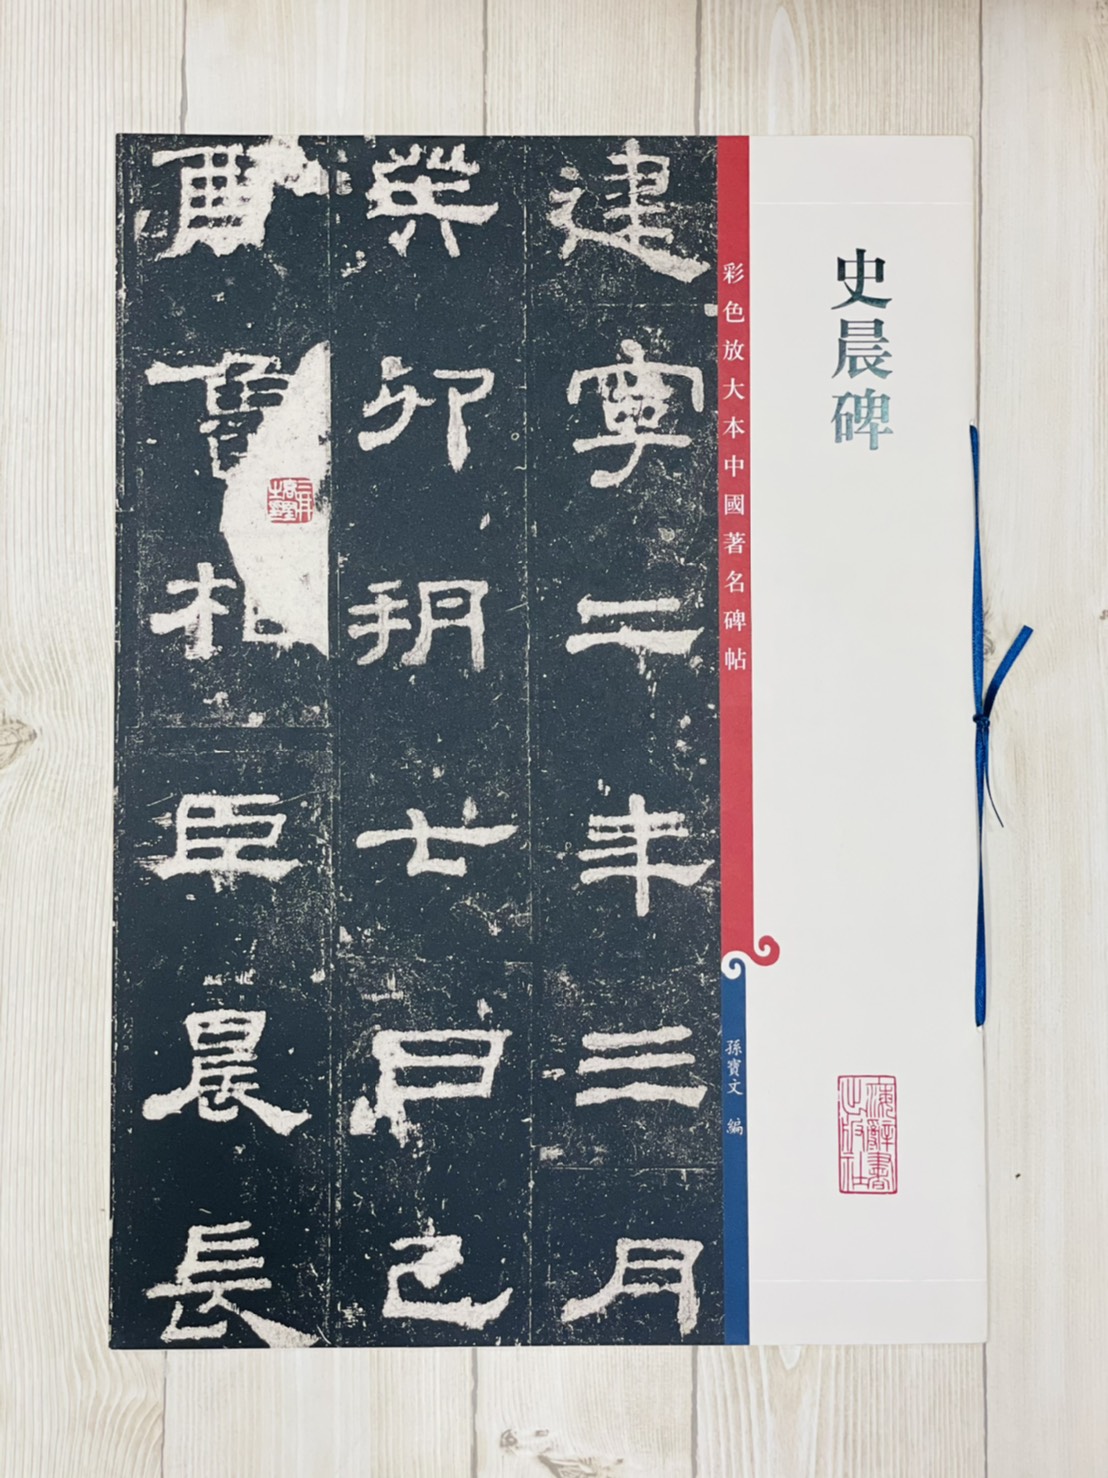 史晨碑
上海辭書
出版社
彩色放大本中國著名碑帖
孫寶文 編
建寧二年三月
癸卯朔七日己
酉魯相臣晨長